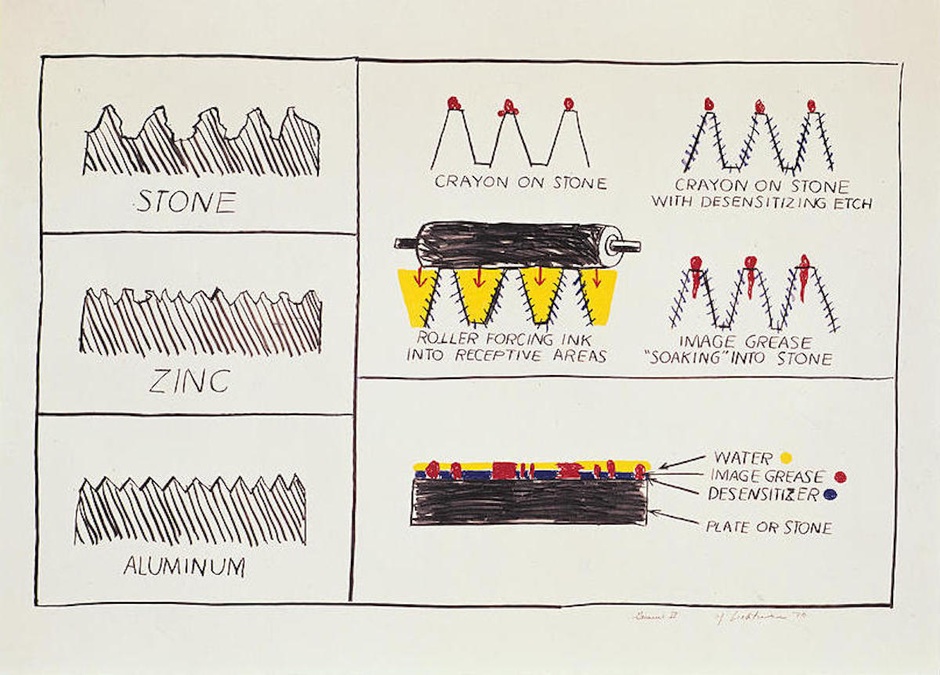 STONE
ZINC
ALUMINUM
CRAYON ON STONE
CRAYON ON STONE
WITH DESENSITIZING ETCH
ROLLER FORCING INK
INTO RECEPTIVE AREAS
IMAGE GREASE
"SOAKING" INTO STONE
WATER
IMAGE GREASE
DESENSITIZER
PLATE OR STONE